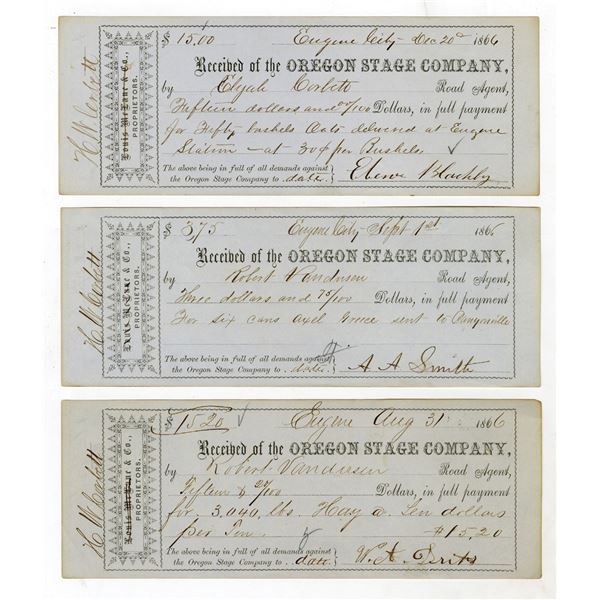 $ 15.00 Eugene City Dec 20th 1866
Received of the OREGON STAGE COMPANY,
by Elijah Corbett Road Agent,
Fifteen dollars and 00/100 Dollars, in full payment
for Fifty bushels Oats delivered at Eugene
Station — at 30¢ per Bushels
The above being in full of all demands against
the Oregon Stage Company to date.
Blachly
H. W. Corbett
Louis McLane & Co.,
PROPRIETORS.
$ 3.75 Eugene City Sept 1st 1866
Received of the OREGON STAGE COMPANY,
by Robert Vandusen Road Agent,
Three dollars and 75/100 Dollars, in full payment
For six cans axel Greece sent to
The above being in full of all demands against
the Oregon Stage Company to date
A A Smith
H. W. Corbett
Louis McLane & Co.,
PROPRIETORS.
$ 15.20 Eugene Aug 31 1866
Received of the OREGON STAGE COMPANY,
by Robert Vandusen Road Agent,
Fifteen & 20/100 Dollars, in full payment
for 3,040 lbs. Hay @ Ten dollars
per Ton $15.20
The above being in full of all demands against
the Oregon Stage Company to date.
W. A.
H. W. Corbett
Louis McLane & Co.,
PROPRIETORS.